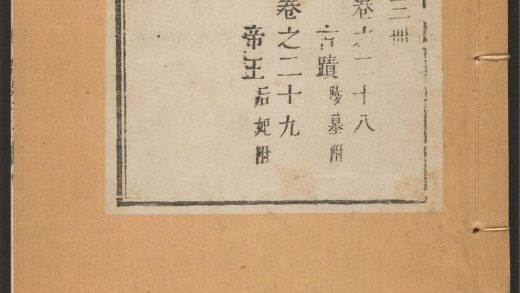 三冊
卷之二十八
古蹟 陵墓附
卷之二十九
帝王 后妃附